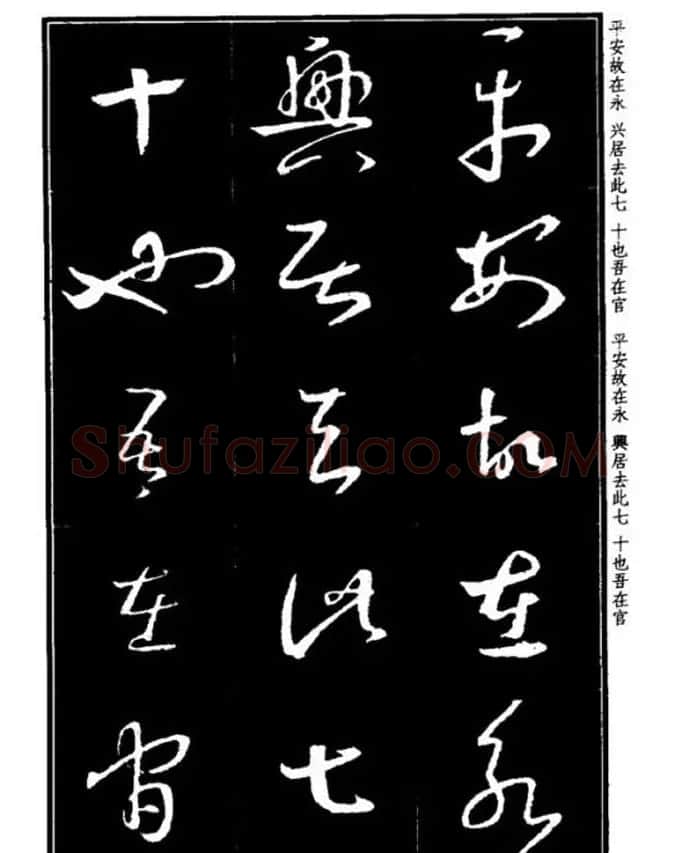 平安故在永
興居去此七
十也吾在官
平安故在永 兴居去此七 十也吾在官 平安故在永 興居去此七 十也吾在官
Shufaziliao.COM